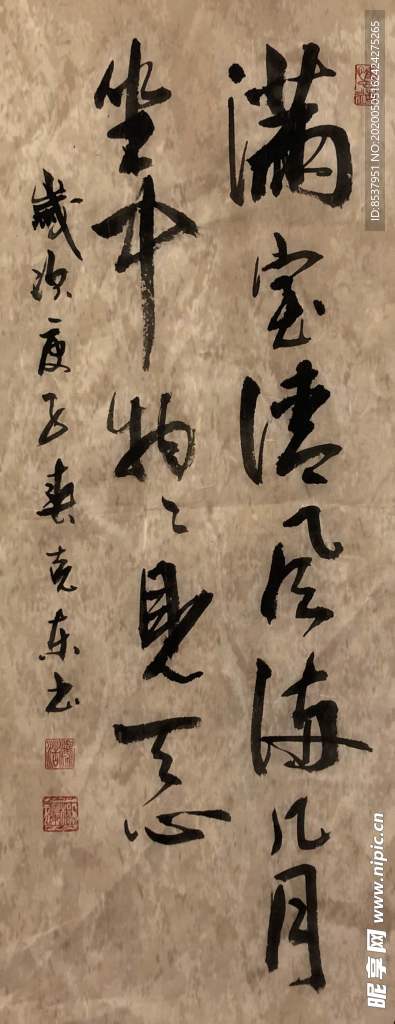 满室清风满几月
坐中物々见天心
歲次庚子春克東书
ID:8537951 NO:20200505162424275265
昵享网 www.nipic.cn